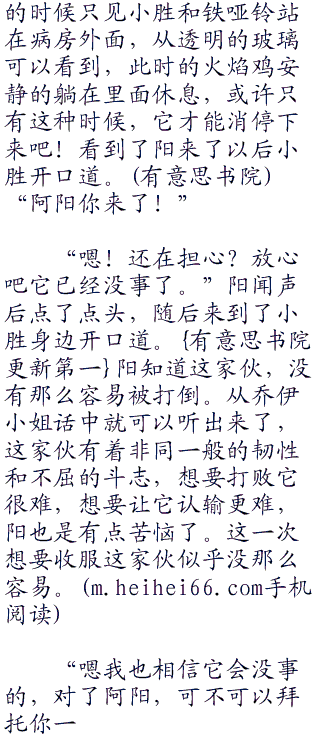 的时候只见小胜和铁哑铃站
在病房外面，从透明的玻璃
可以看到，此时的火焰鸡安
静的躺在里面休息，或许只
有这种时候，它才能消停下
来吧！看到了阳来了以后小
胜开口道。(有意思书院)
“阿阳你来了！”
“嗯！还在担心？放心
吧它已经没事了。”阳闻声
后点了点头，随后来到了小
胜身边开口道。{有意思书院
更新第一}阳知道这家伙，没
有那么容易被打倒。从乔伊
小姐话中就可以听出来了，
这家伙有着非同一般的韧性
和不屈的斗志，想要打败它
很难，想要让它认输更难，
阳也是有点苦恼了。这一次
想要收服这家伙似乎没那么
容易。(m.heihei66.com手机
阅读)
“嗯我也相信它会没事
的，对了阿阳，可不可以拜
托你一